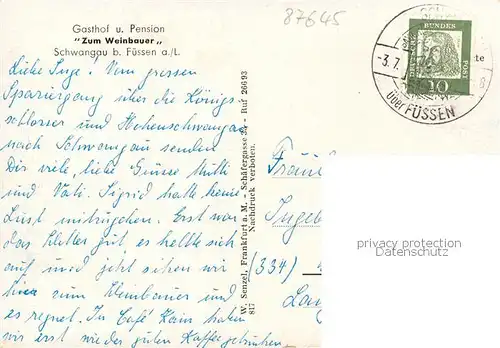 87645
Gasthof u. Pension
"Zum Weinbauer"
Schwangau b. Füssen a./L.
Liebe Inge! Vom grossen
Spaziergang über die Königs-
schlösser und Hohenschwangau
nach Schwangau senden
Dir viele, liebe Grüsse Mutti
und Vati. Sigrid hatte keine
Lust mitzugehen. Erst war
das Wetter gut es hellte sich
auf und jetzt sitzen wir
hier zum Weinbauer und
es regnet. In Café Kain haben
wir erst wieder guten Kaffee getrunken.
W. Senzel, Frankfurt a. M. - Schäfergasse 24 - Ruf 26693
Nachdruck verboten.
817
DEUTSCHE BUNDESPOST
10
-3.7.
über FÜSSEN
te
Fräul
Ingeb
(334)
Lan
privacy protection
Datenschutz